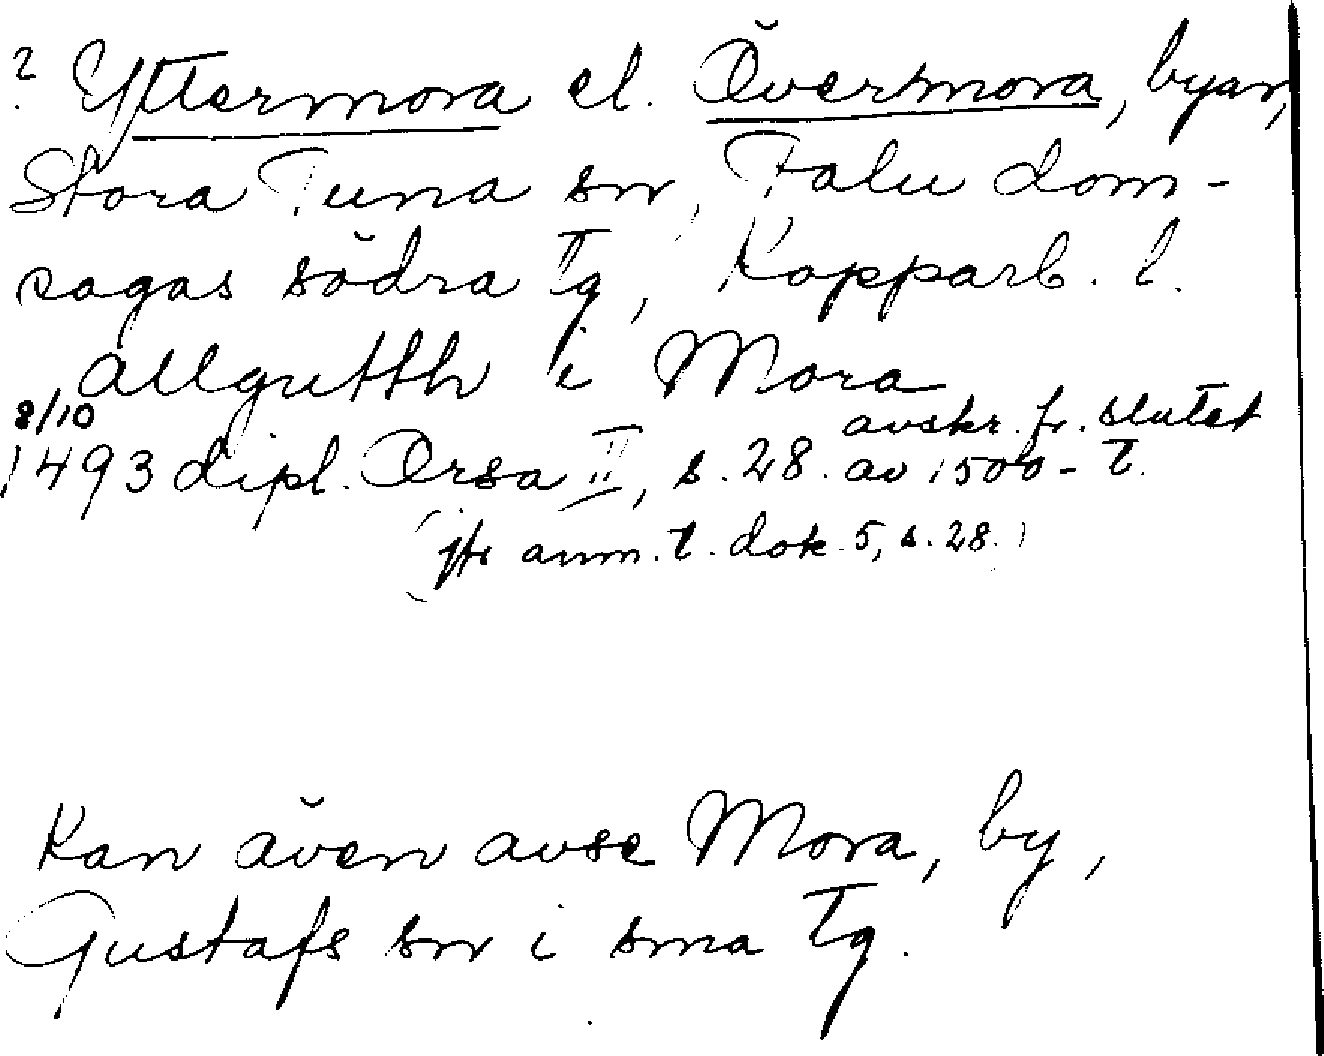 ? Yttermora el. Övermora, byar,
Stora Tuna sn, Falu dom-
sagas södra Tg, Kopparb. l.
allgutth i Mora
8/10 avskr. fr. slutet
1493 dipl. Orsa II, s. 28. av 1500-t.
(jfr anm. t. dok. 5, s. 28.)
Kan även avse Mora, by,
Gustafs sn i sma Tg.